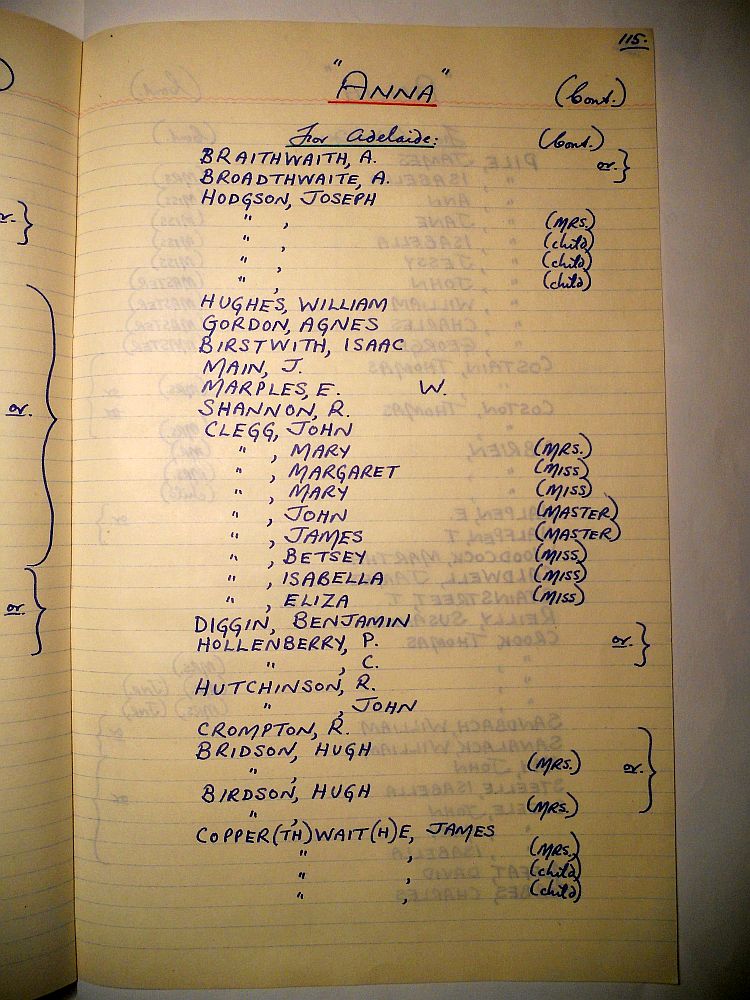 115.
"ANNA" (Cont.)
For Adelaide: (Cont.)
BRAITHWAITH, A. or.}
BROADTHWAITE, A.
HODGSON, JOSEPH
" , (MRS.)
" , (child)
" , (child)
" , (child)
HUGHES, WILLIAM
GORDON, AGNES
BIRSTWITH, ISAAC
MAIN, J.
MARPLES, E. W.
SHANNON, R.
CLEGG, JOHN
" , MARY (MRS.)
" , MARGARET (MISS)
" , MARY (MISS)
" , JOHN (MASTER)
" , JAMES (MASTER)
" , BETSEY (MISS)
" , ISABELLA (MISS)
" , ELIZA (MISS)
DIGGIN, BENJAMIN
HOLLENBERRY, P. or.}
" , C.
HUTCHINSON, R.
" , JOHN
CROMPTON, R.
BRIDSON, HUGH
" , (MRS.) or.}
BIRDSON, HUGH
" , (MRS.)
COPPER(TH)WAIT(H)E, JAMES
" , (MRS.)
" , (child)
" , (child)
or.}
or.}
or.}